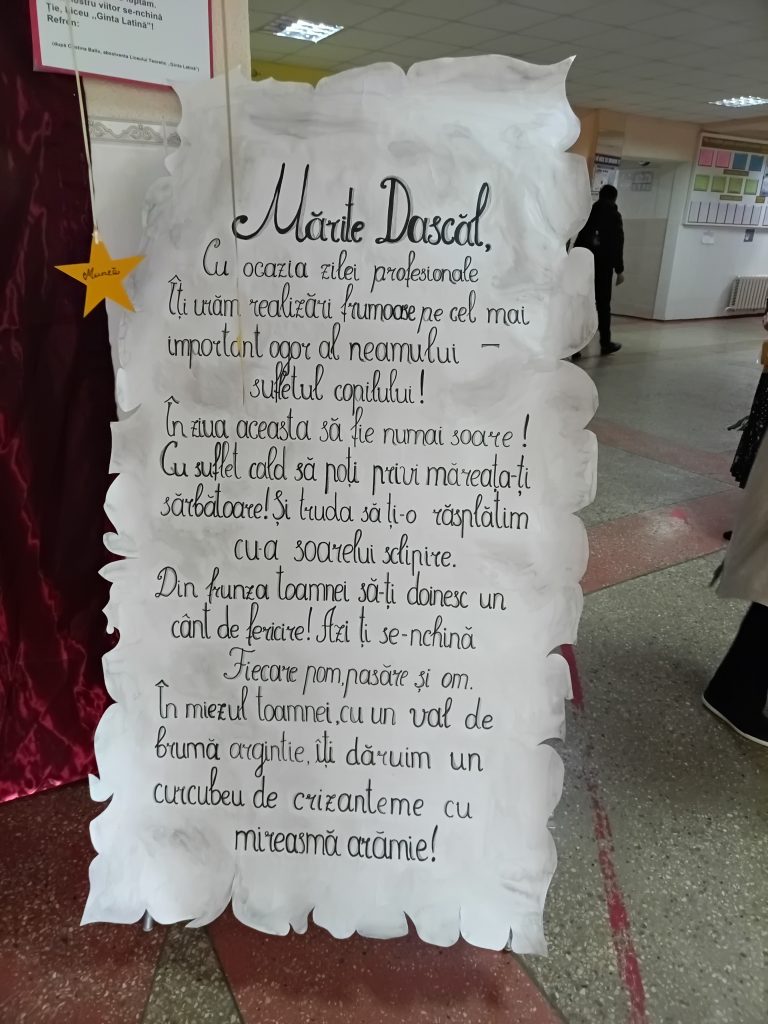 luptăm.
nostru viitor se-nchină
Ție, Liceu ,,Ginta Latină"!
Refren:
(după Cristina Baltu, absolventa Liceului Teoretic ,,Ginta Latină")
Mărite Dascăl,
Cu ocazia zilei profesionale
Îți urăm realizări frumoase pe cel mai
important ogor al neamului –
sufletul copilului!
În ziua aceasta să fie numai soare!
Cu suflet cald să poți privi măreața-ți
sărbătoare! Și truda să ți-o răsplătim
cu-a soarelui sclipire.
Din frunza toamnei să-ți doinesc un
cânt de fericire! Azi ți se-nchină
Fiecare pom, pasăre și om.
În miezul toamnei, cu un val de
brumă argintie, îți dăruim un
curcubeu de crizanteme cu
mireasmă arămie!